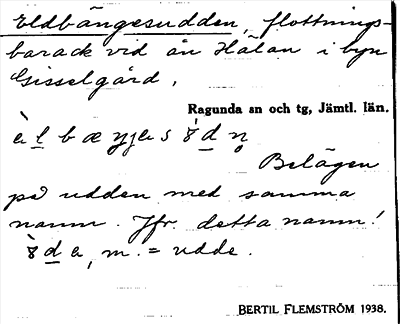 Eldbängesudden, flottnings-
barack vid ån Hålan i byn
Gisselgård.
Ragunda sn och tg, Jämtl. län.
Belägen
på udden med samma
namn. Jfr. detta namn!
m. = udde.
BERTIL FLEMSTRÖM 1938.